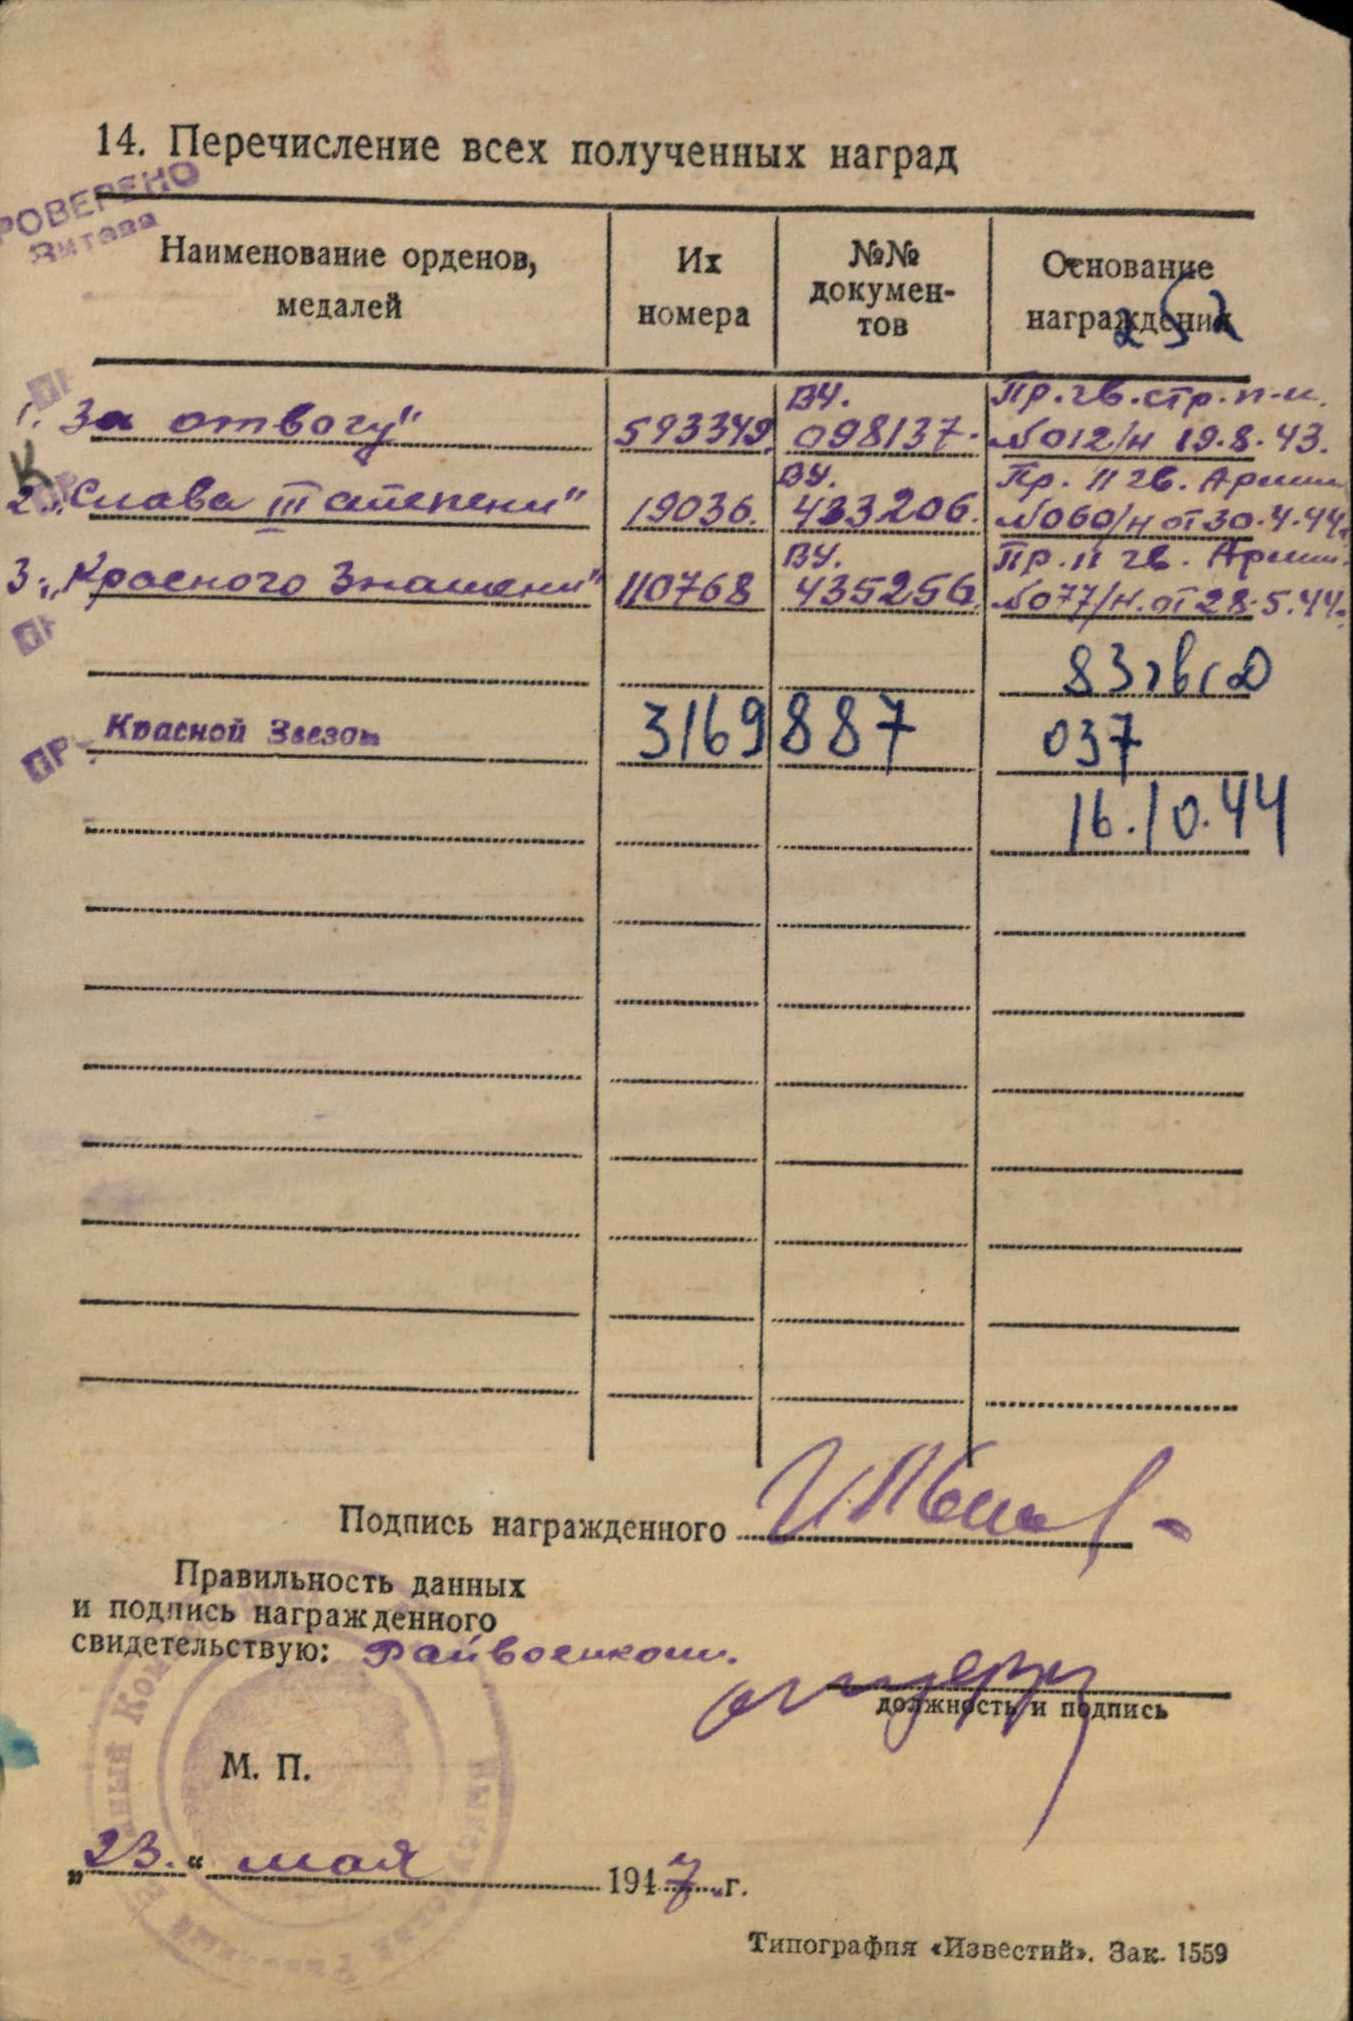 14. Перечисление всех полученных наград
РОВЕРЕНО
Наименование орденов, медалей
Их номера
№№ докумен-тов
Основание награждения
252
1. За отвагу" 593349. ВУ. 098137. Пр. гв. стр. п-и. №012/н 19.8.43.
К
2. „Слава III степени" 19036. ВУ. 433206. Пр. 11 гв. Армии №060/н от 30.4.44.
3. „Красного Знамени" 110768 ВУ. 435256. Пр. 11 гв. Армии. №077/н. от 28.5.44.
83 гв сд
ПР Красной Звезды 3169887 037
16.10.44
Подпись награжденного
Правильность данных
и подпись награжденного
свидетельствую: Райвоенком.
должность и подпись
М. П.
„23." мая 1947 г.
Типография «Известий». Зак. 1559